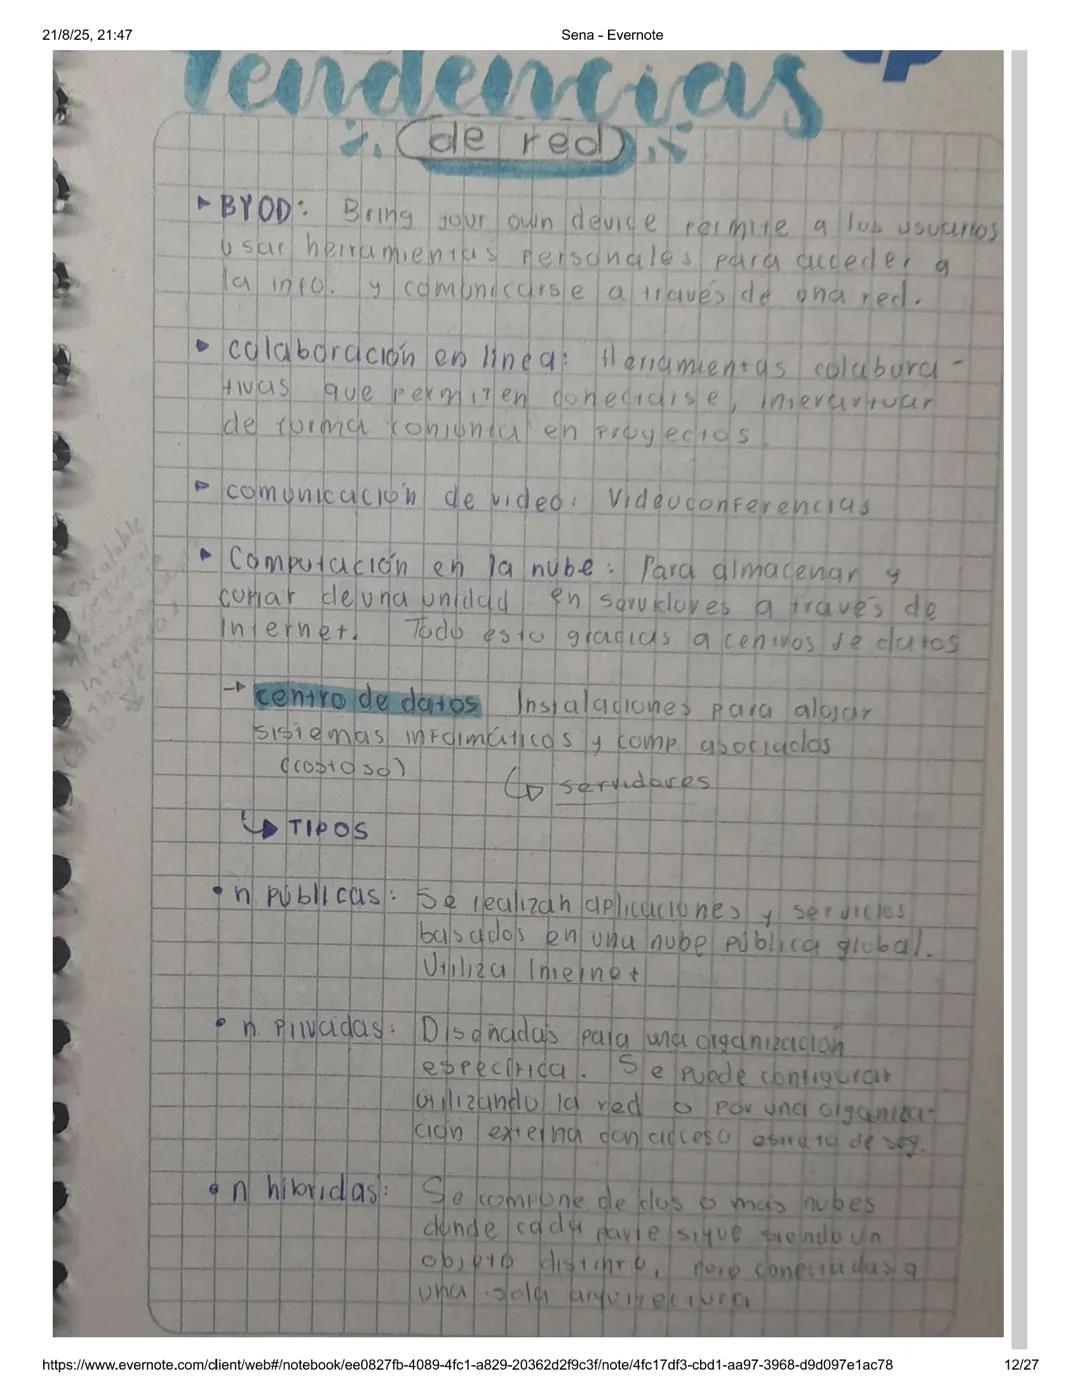 21/8/25, 21:47
Sena - Evernote
Tendencias
de red
BYOD: Bring your own device permite a los usuarios
usar herramientas personales para acceder a
la info. y comunicarse a través de una red.
colaboración en linea: Herramientas colabora-
tivas que permiten conectarse, interactuar
de forma conjunta en proyectos.
comunicación de video: Videoconferencias
Computación en la nube: Para almacenar y
copiar de una unidad en servidores a través de
Internet. Todo esto gracias a centros de datos
→ centro de datos Instalaciones para alojar
sistemas informáticos y comp. asociados
(costoso)
↳ servidores
↳ TIPOS
• n. públicas: Se realizan aplicaciones y servicios
basados en una nube pública global.
Utiliza Internet
• n. Privadas: Diseñadas para una organización
específica. Se puede configurar
utilizando la red o por una organiza-
ción externa con acceso de seg.
• n hibridas: Se compone de dos o más nubes
donde cada parte sigue siendo un
objeto distinto, pero conectadas a
una sola arquitectura
escalable
https://www.evernote.com/client/web#/notebook/ee0827fb-4089-4fc1-a829-20362d2f9c3f/note/4fc17df3-cbd1-aa97-3968-d9d097e1ac78
12/27